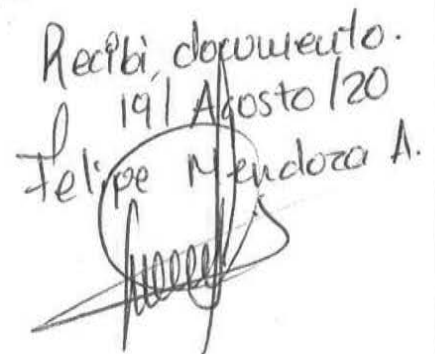 Recibí documento.
19/ Agosto /20
Felipe Mendoza A.